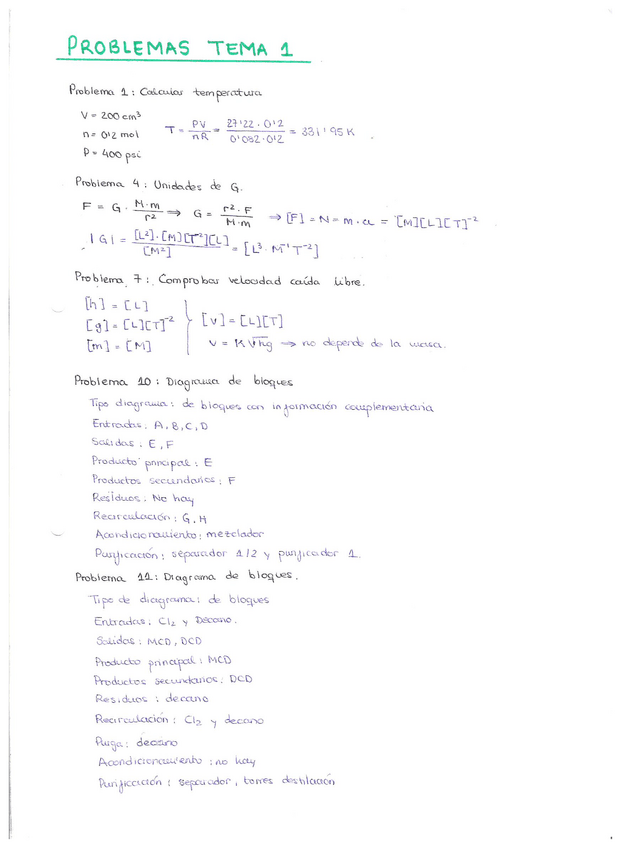 PROBLEMAS TEMA 1
Problema 1: Calcular temperatura
V = 200 cm³
n = 0'2 mol T = PV/nR = 27'22 · 0'2 / 0'082 · 0'2 = 331'95 K .
P = 400 psi
Problema 4: Unidades de G.
F = G · M·m/r² ⟹ G = r²·F/M·m ⟹ [F] = N = m·a = [M][L][T]⁻²
|G| = [L²]·[M][T⁻²][L]/[M²] = [L³·M⁻¹T⁻²]
Problema 7: Comprobar velocidad caída libre.
[h] = [L]
[g] = [L][T]⁻² [v] = [L][T]
[m] = [M] v = K√hg ⟹ no depende de la masa.
Problema 10: Diagrama de bloques
Tipo diagrama: de bloques con información complementaria
Entradas: A, B, C, D
Salidas: E, F
Producto principal: E
Productos secundarios: F
Residuos: No hay
Recirculación: G, H
Acondicionamiento: mezclador
Purificación: separador 1/2 y purificador 1.
Problema 11: Diagrama de bloques.
Tipo de diagrama: de bloques
Entradas: Cl₂ y Decano.
Salidas: MCD, DCD
Producto principal: MCD
Productos secundarios: DCD
Residuos: decano
Recirculación: Cl₂ y decano
Purga: decano
Acondicionamiento: no hay
Purificación: separador, torres destilación